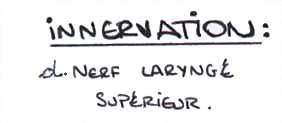 INNERVATION:
d. NERF LARYNGÉ
SUPÉRIEUR.